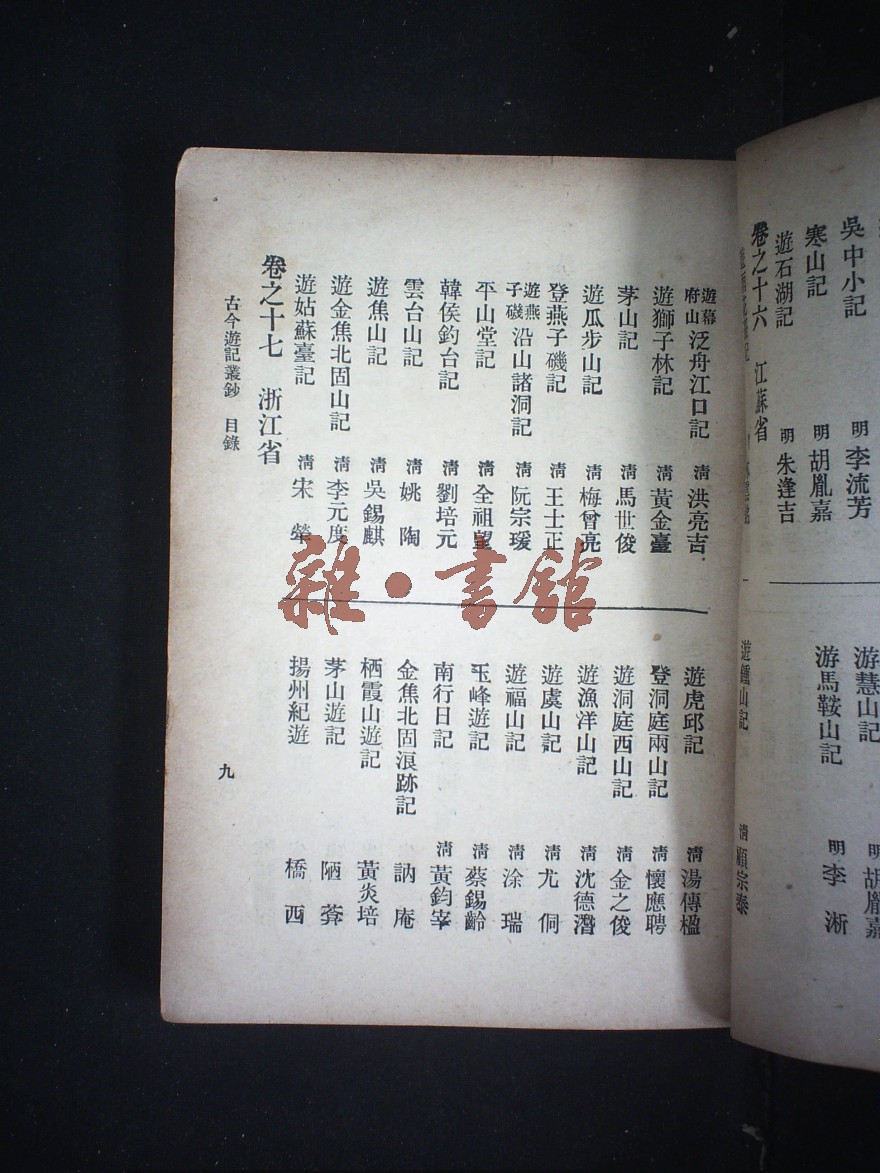 吳中小記 明 李流芳
寒山記 明 胡胤嘉
遊石湖記 明 朱逢吉
卷之十六 江蘇省
游慧山記 明 胡胤嘉
游馬鞍山記 明 李淅
遊鍾山記 清 顧宗泰
遊幕府山泛舟江口記 清 洪亮吉
遊獅子林記 清 黃金臺
茅山記 清 馬世俊
遊瓜步山記 清 梅曾亮
登燕子磯記 清 王士正
遊燕子磯沿山諸洞記 清 阮宗瑗
平山堂記 清 全祖望
韓侯釣台記 清 劉培元
雲台山記 清 姚陶
遊焦山記 清 吳錫麒
遊金焦北固山記 清 李元度
遊姑蘇臺記 清 宋犖
遊虎邱記 清 湯傳楹
登洞庭兩山記 清 懷應聘
遊洞庭西山記 清 金之俊
遊漁洋山記 清 沈德潛
遊虞山記 清 尤侗
遊福山記 清 涂瑞
玉峰遊記 清 蔡錫齡
南行日記 清 黃鈞宰
金焦北固浪跡記 訥庵
栖霞山遊記 黃炎培
茅山遊記 陋葊
揚州紀遊 橋西
卷之十七 浙江省
古今遊記叢鈔 目錄
九
雜·書館